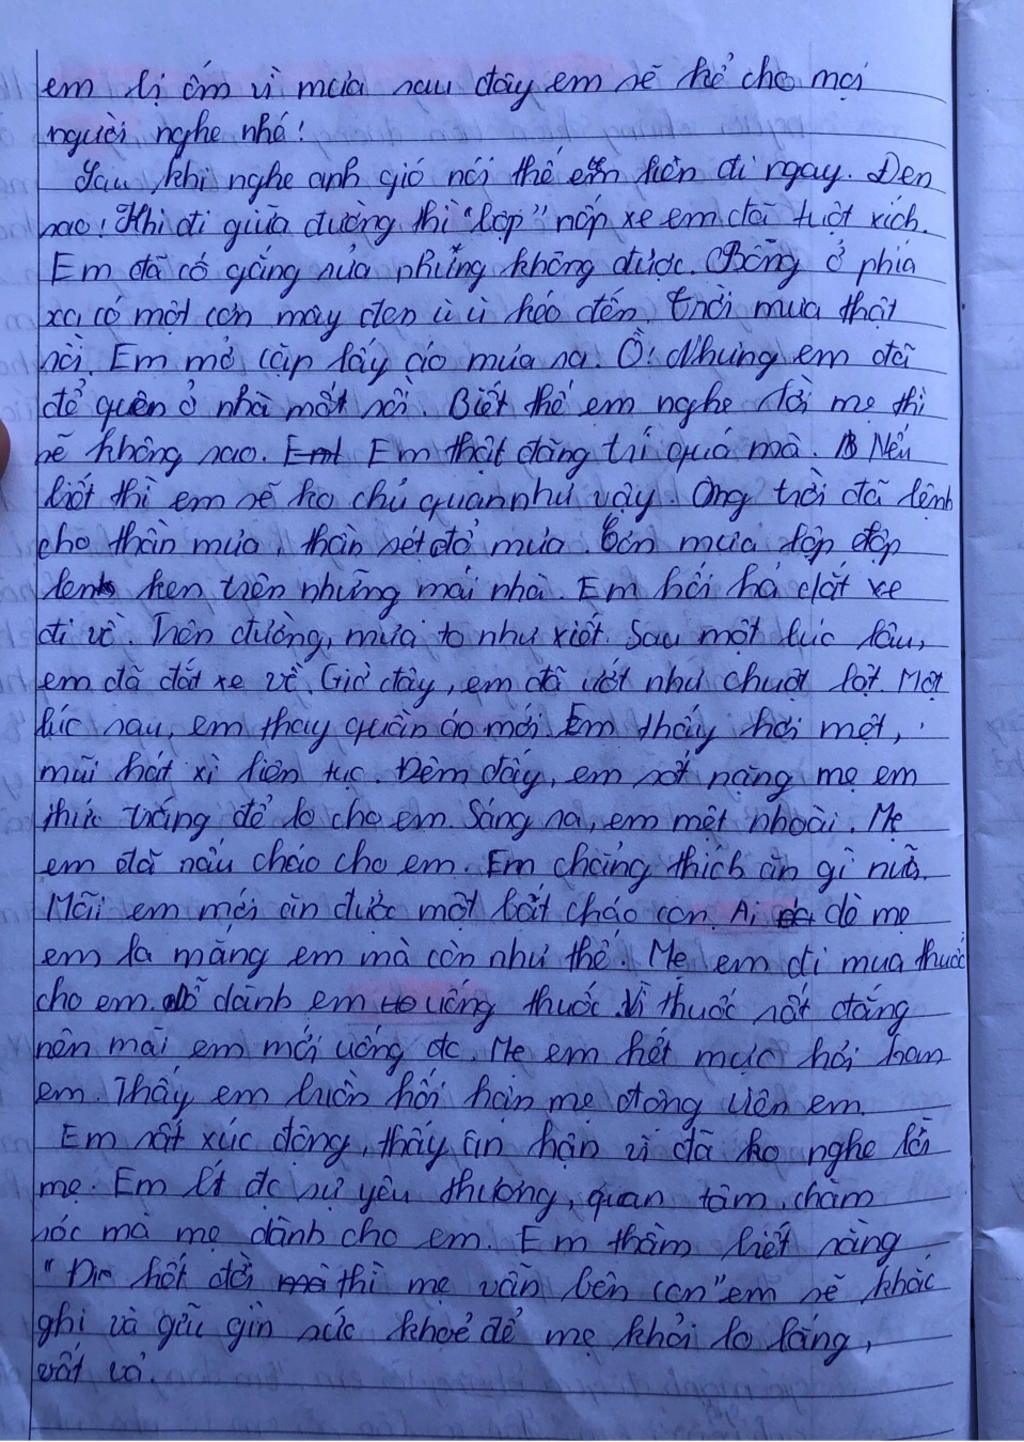 em bị ốm vì mưa sau đây em sẽ kể cho mọi
người nghe nhé!
Sau khi nghe anh gió nói thế em liền đi ngay. Đen
sao! Khi đi giữa đường thì "bộp" nốp xe em đã tuột xích.
Em đã cố gắng sửa nhưng không được. Bỗng ở phía
xa có một cơn mây đen ù ù kéo đến. Trời mưa thật
rồi. Em mở cặp lấy áo mưa ra. Ồ! Nhưng em đã
để quên ở nhà mất rồi. Biết thế em nghe lời mẹ thì
sẽ không sao. Em thật đãng trí quá mà. Nếu
biết thì em sẽ ko chủ quan như vậy. Ông trời đã lệnh
cho thần mưa, thần sét đổ mưa. Cơn mưa lộp độp
trên những mái nhà. Em hối hả dắt xe
đi về. Trên đường, mưa to như xiết. Sau một lúc lâu,
em đã dắt xe về. Giờ đây, em đã ướt như chuột lột. Một
lúc sau, em thay quần áo mới. Em thấy hơi mệt,
mũi hắt xì liên tục. Đêm đấy, em sốt nặng mẹ em
thức trắng để lo cho em. Sáng ra, em mệt nhoài. Mẹ
em đã nấu cháo cho em. Em chẳng thích ăn gì nữa.
Mãi em mới ăn được một bát cháo con. Ai dè mẹ
em la mắng em mà còn như thế. Mẹ em đi mua thuốc
cho em. dỗ dành em uống thuốc. Vì thuốc rất đắng
nên mãi em mới uống đc. Mẹ em hết mực hỏi han
em. Thấy em buồn hối hận mẹ động viên em.
Em rất xúc động, thấy ân hận vì đã ko nghe lời
mẹ. Em biết đc sự yêu thương, quan tâm, chăm
sóc mà mẹ dành cho em. Em thầm biết rằng
"Đi hết đời thì mẹ vẫn bên con" em sẽ khắc
ghi và giữ gìn sức khoẻ để mẹ khỏi lo lắng,
vất vả.